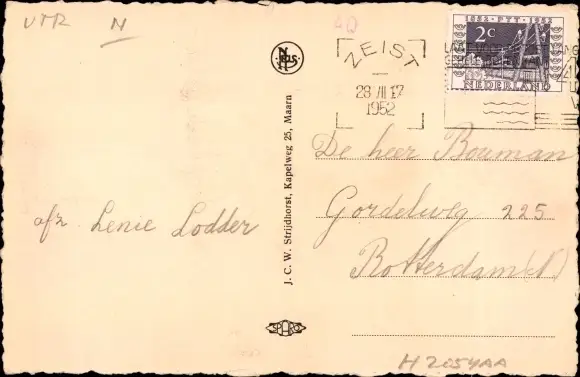 UTR N
40
NELS
ZEIST
28 VII 17
1952
1852 · PTT · 1952
2c
NEDERLAND
De heer Bouman
Gordelweg 225
Rotterdam (N)
afz Lenie Lodder
J. C. W. Strijdhorst, Kapelweg 25, Maarn
H 2054AA